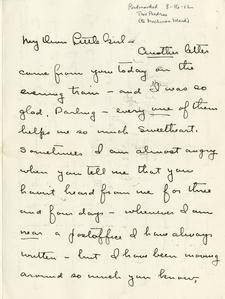 Postmarked 8-16-12
San Pedro
(to Mackinac Island)
My Own Little Girl -
Another letter
came from you today on the
evening train - and I was so
glad. Darling - every one of them
helps me so much sweetheart.
Sometimes I am almost angry
when you tell me that you
havn't heard from me for three
and four days - whenever I am
near a postoffice I have always
written - but I have been moving
around so much you know,